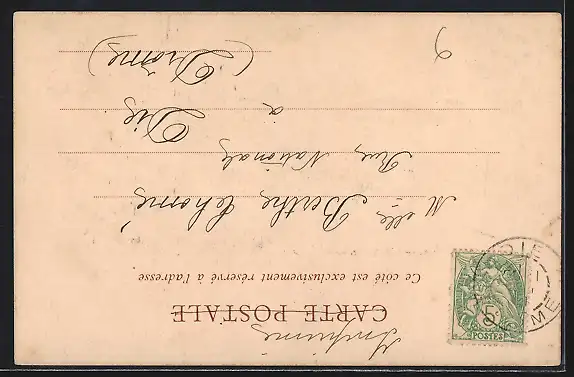 Imprimé
CARTE POSTALE
Ce côté est exclusivement réservé à l'adresse
Melle Berthe
Rue Nationale
à Die
(Drôme)
9
5
POSTES
DIE